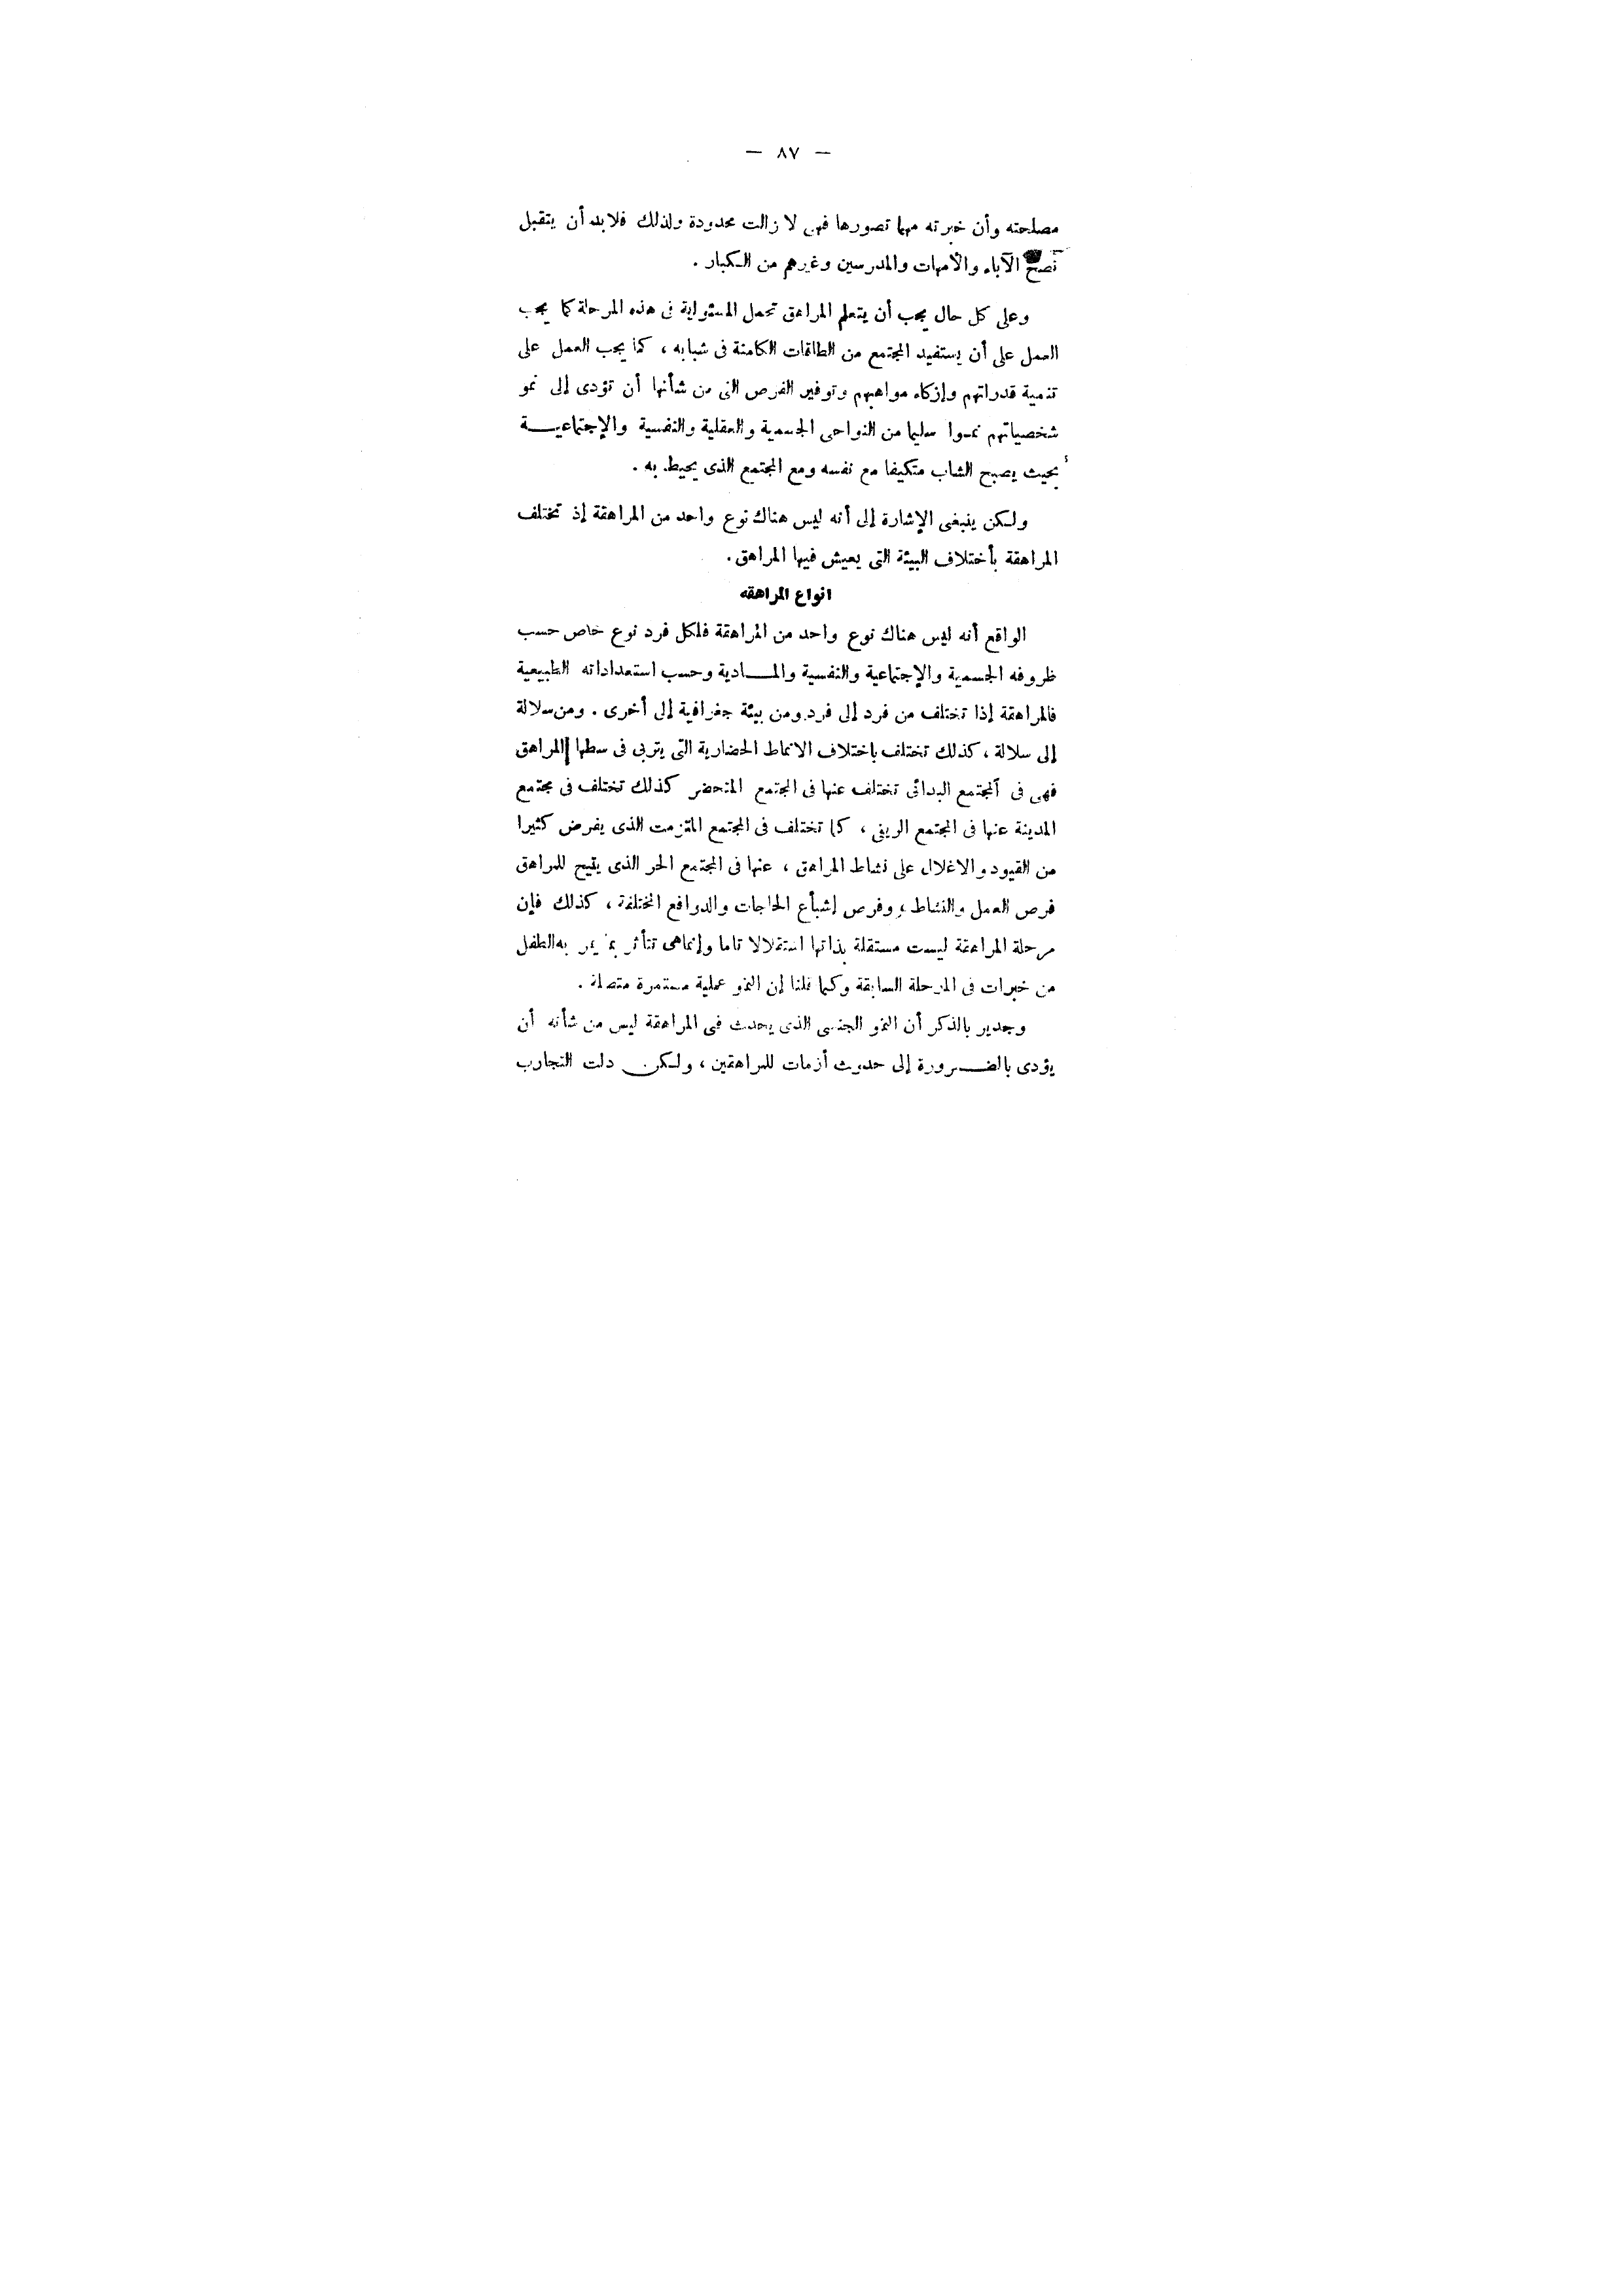 — ٨٧ —
مصلحته وأن خبرته مهما تصورها فهى لا زالت محدودة ولذلك فلابد أن يتقبل
نصح الآباء والأمهات والمدرسين وغيرهم من الكبار .
وعلى كل حال يجب أن يتعلم المراهق تحمل المسئولية فى هذه المرحلة كما يجب
العمل على أن يستفيد المجتمع من الطاقات الكامنة فى شبابه ، كما يجب العمل على
تنمية قدراتهم وإزكاء مواهبهم وتوفير الفرص التى من شأنها أن تؤدى إلى نمو
شخصياتهم نموا سليما من النواحى الجسمية والعقلية والنفسية والإجتماعيــة
بحيث يصبح الشاب متكيفا مع نفسه ومع المجتمع الذى يحيط به .
ولكن ينبغى الإشارة إلى أنه ليس هناك نوع واحد من المراهقة إذ تختلف
المراهقة بأختلاف البيئة التى يعيش فيها المراهق .
انواع المراهقه
الواقع أنه ليس هناك نوع واحد من المراهقة فلكل فرد نوع خاص حسب
ظروفه الجسمية والإجتماعية والنفسية والمــادية وحسب استعداداته الطبيعية
فالمراهقة إذا تختلف من فرد إلى فرد ومن بيئة جغرافية إلى أخرى . ومن سلالة
إلى سلالة ، كذلك تختلف باختلاف الانماط الحضارية التى يتربى فى سطها المراهق
فهى فى المجتمع البدائى تختلف عنها فى المجتمع المتحضر كذلك تختلف فى مجتمع
المدينة عنها فى المجتمع الريفى ، كما تختلف فى المجتمع المتزمت الذى يفرض كثيرا
من القيود والاغلال على نشاط المراهق ، عنها فى المجتمع الحر الذى يتيح للمراهق
فرص العمل والنشاط ، وفرص إشبأع الحاجات والدوافع المختلفة ، كذلك فإن
مرحلة المراهقة ليست مستقلة بذاتها استقلالا تاما وإنماهى تتأثر بما يمر به الطفل
من خبرات فى المرحلة السابقة وكما قلنا إن النمو عملية مستمرة متصلة .
وجدير بالذكر أن النمو الجنسى الذى يحدث فى المراهقة ليس من شأنه أن
يؤدى بالضــرورة إلى حدوث أزمات للمراهقين ، ولكن دلت التجارب